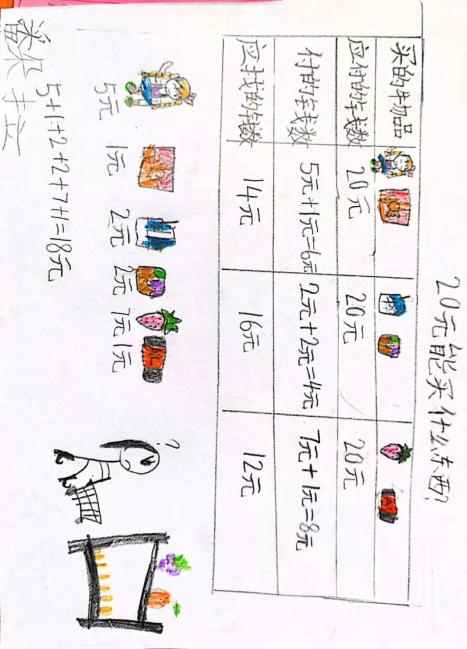 20元能买什么东西?
买的物品
应付的钱数 20元 20元 20元
付的钱数 5元+1元=6元 2元+2元=4元 7元+1元=8元
应找的钱数 14元 16元 12元
5元 1元 2元 2元 7元 1元
?
5+1+2+2+7+1=18元